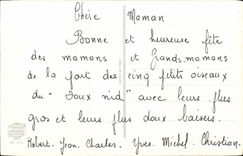 Chère Maman
Bonne et heureuse fête
des mamans et Grands mamans
de la part des cinq petits oiseaux
du "doux nid" avec leurs plus
gros et leurs plus doux baisers.
Robert. Jean. Charles. Yves. Michel. Christian.